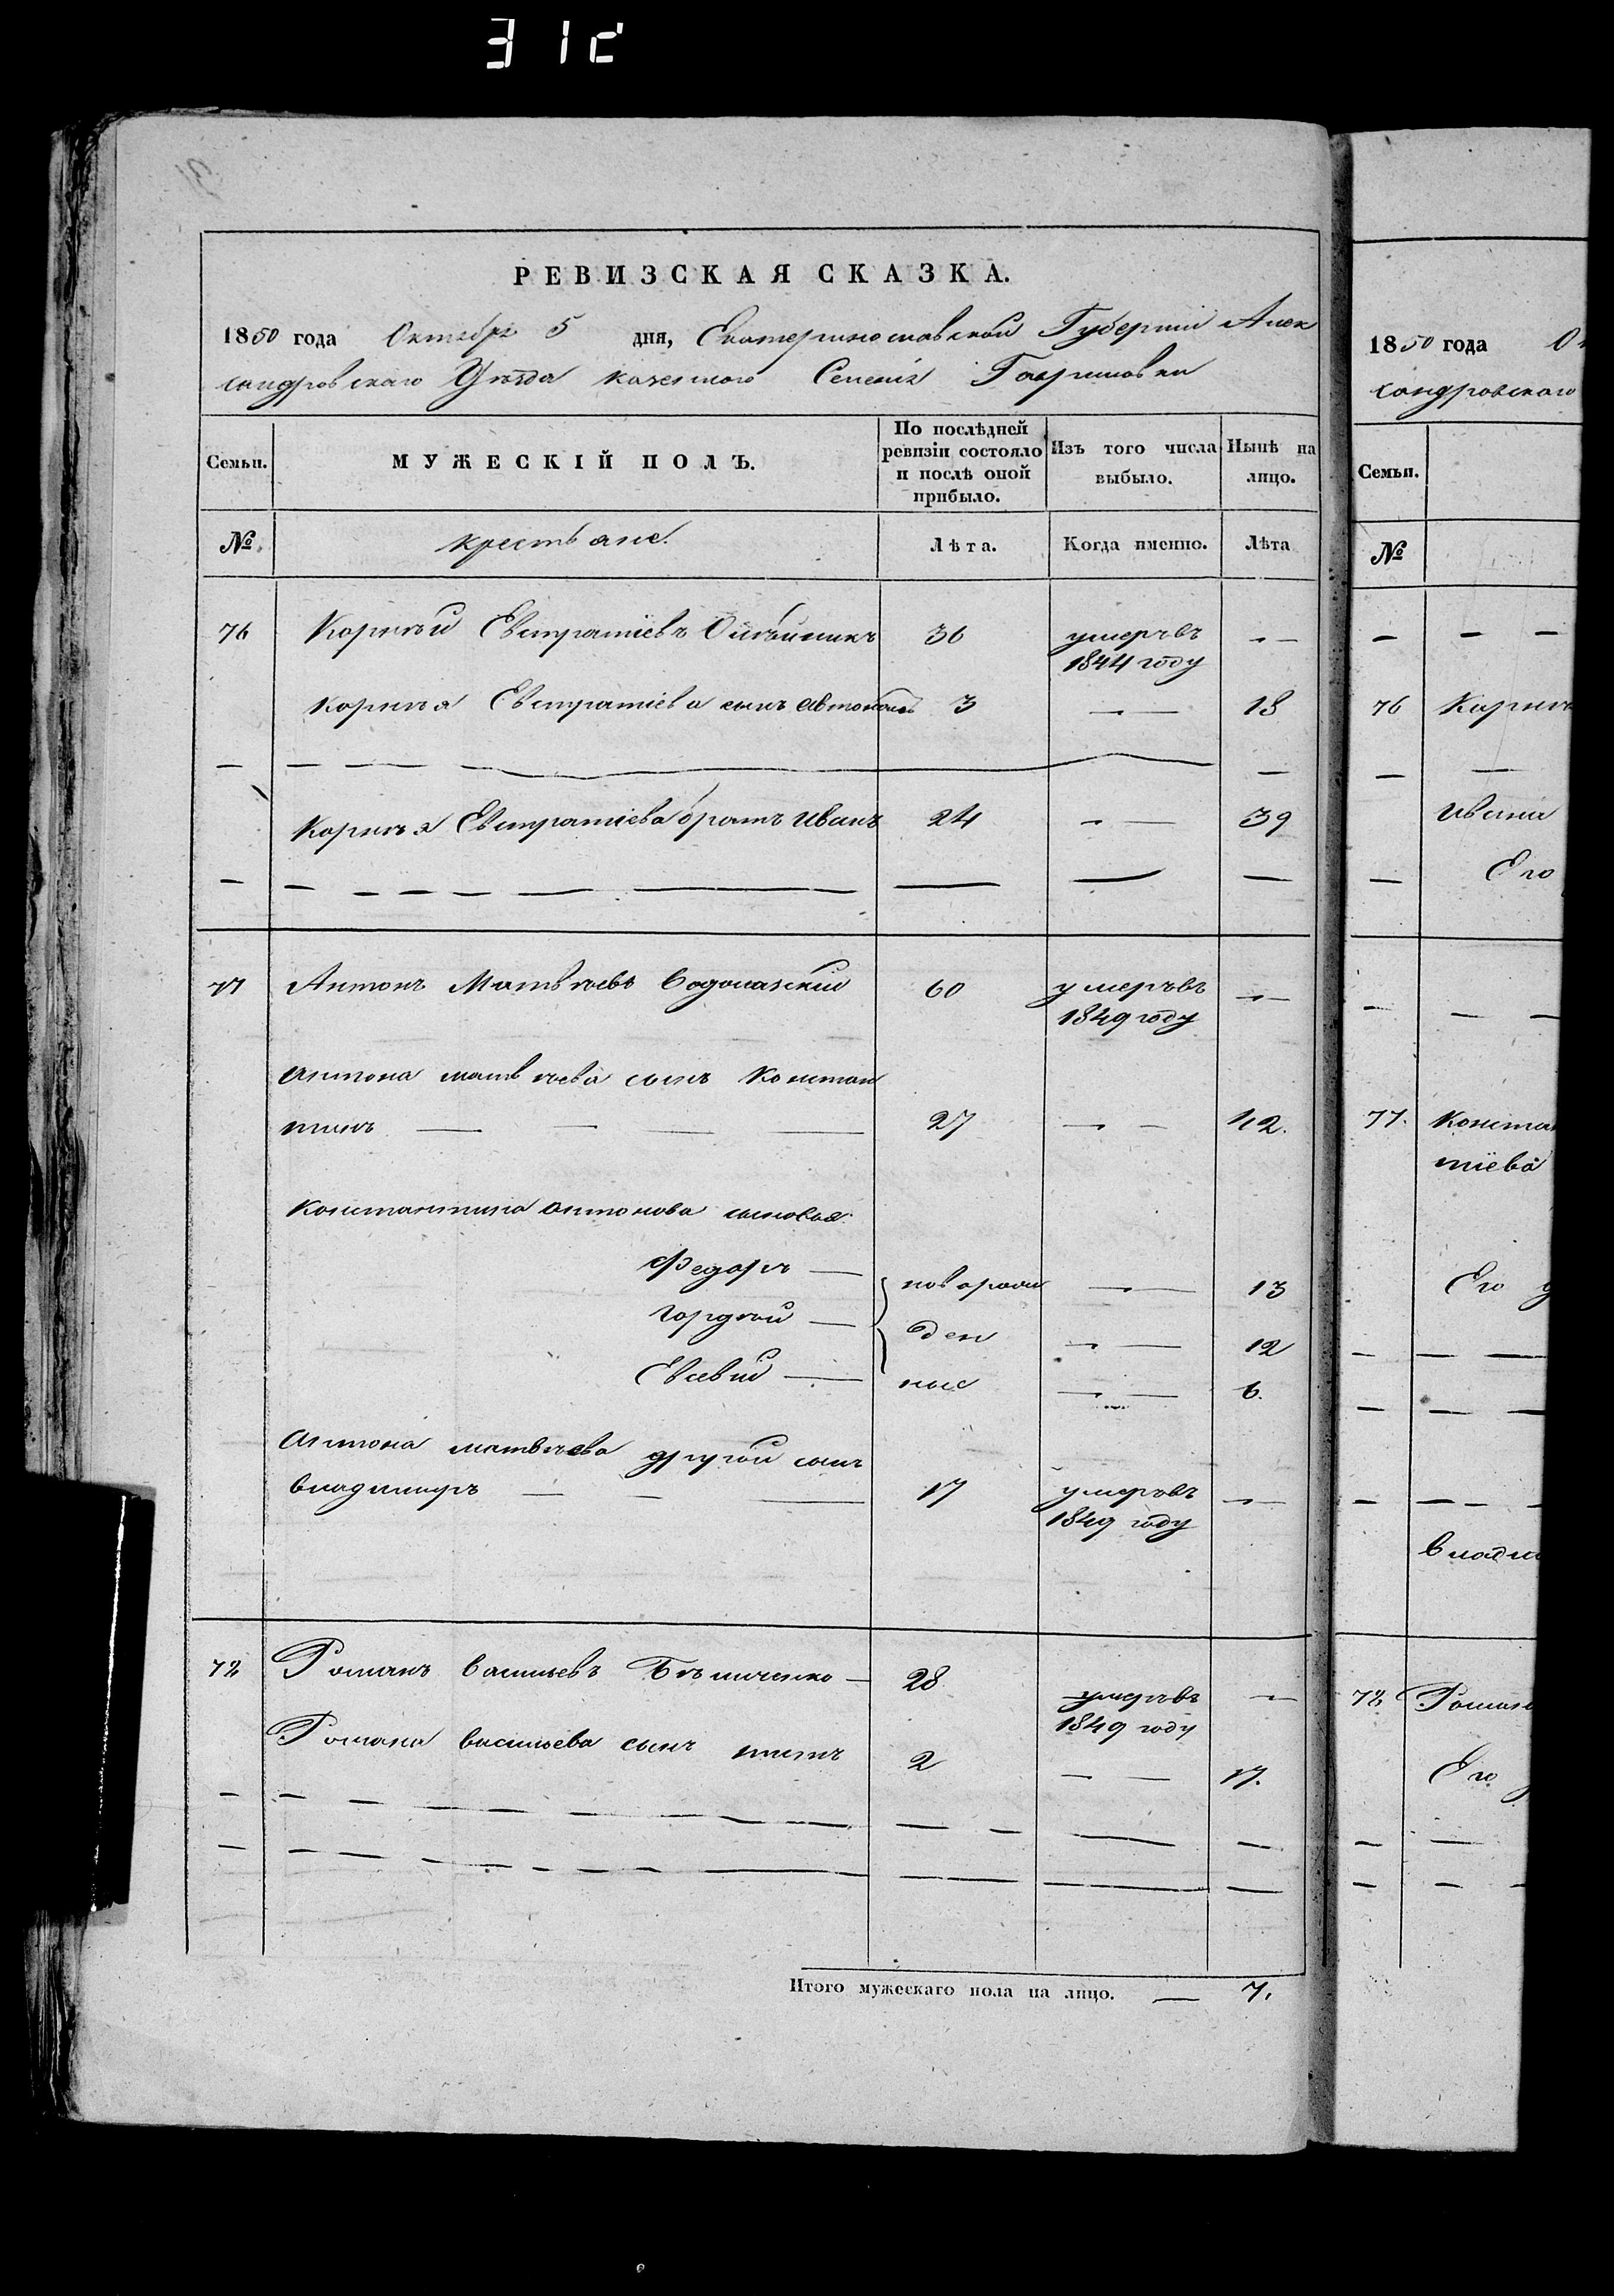 31с
РЕВИЗСКАЯ СКАЗКА.
1850 года Октября 5 дня, Екатеринославской Губерніи Алек
сандровскаго Уѣзда казеннаго Селенія Гавриловки
Семьи. МУЖЕСКІЙ ПОЛЪ. По послѣдней ревизіи состояло и послѣ оной прибыло. Изъ того числа выбыло. Нынѣ на лицо.
№ крестьяне. Лѣта. Когда именно. Лѣта
76 Корнѣй Евстратіевъ Олѣйникъ 36 умеръ въ 1844 году
Корнѣя Евстратіева сынъ Автономъ 3 18
Корнѣя Евстратіева братъ Иванъ 24 39
77 Антонъ Матвѣевъ Водолазкій 60 умеръ въ 1849 году
Антона Матвѣева сынъ Констан
тинъ 27 42.
Константина Антонова сыновья
Федоръ новорож 13
Гордѣй ден 12
Евсевій ные 6.
Антона Матвѣева другой сынъ
Владимиръ 17 умеръ въ 1849 году
78 Романъ Васильевъ Бѣличенко 28 умеръ въ 1849 году
Романа Васильева сынъ Титъ 2 17.
Итого мужескаго пола на лицо. 7.
1850 года
сандровскаго
Семьи.
№
76 Корнѣ
Ивана
Его
77. Конста
тіева
Его
Влади
78 Рома
Его